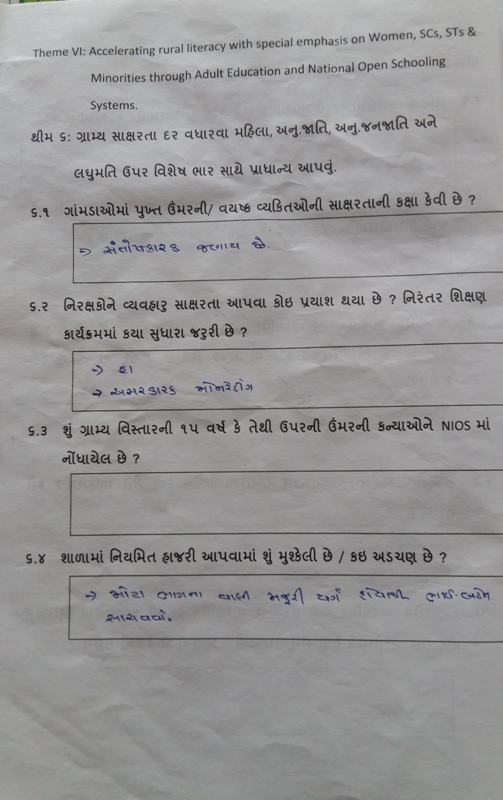 Theme VI: Accelerating rural literacy with special emphasis on Women, SCs, STs &
Minorities through Adult Education and National Open Schooling
Systems.
થીમ ૬: ગ્રામ્ય સાક્ષરતા દર વધારવા મહિલા, અનુ.જાતિ, અનુ.જનજાતિ અને
લઘુમતિ ઉપર વિશેષ ભાર સાથે પ્રાધાન્ય આપવું.
૬.૧ ગાંમડાઓમાં પુખ્ત ઉંમરની/ વયષ્ક વ્યકિતઓની સાક્ષરતાની કક્ષા કેવી છે ?
→ સંતોષકારક જણાય છે.
૬.૨ નિરક્ષકોને વ્યવહારુ સાક્ષરતા આપવા કોઇ પ્રયાશ થયા છે ? નિરંતર શિક્ષણ
કાર્યક્રમમાં કયા સુધારા જરુરી છે ?
→ હા
→ અસરકારક મોનરેટીંગ
૬.૩ શું ગ્રામ્ય વિસ્તારની ૧૫ વર્ષ કે તેથી ઉપરની ઉંમરની કન્યાઓને NIOS માં
નોંધાયેલ છે ?
૬.૪ શાળામાં નિયમિત હાજરી આપવામાં શું મુશ્કેલી છે / કઇ અડચણ છે ?
→ મોટા ભાગના વાલી મજુરી વર્ગ ભાઈ-બહેન
સાચવવાં.